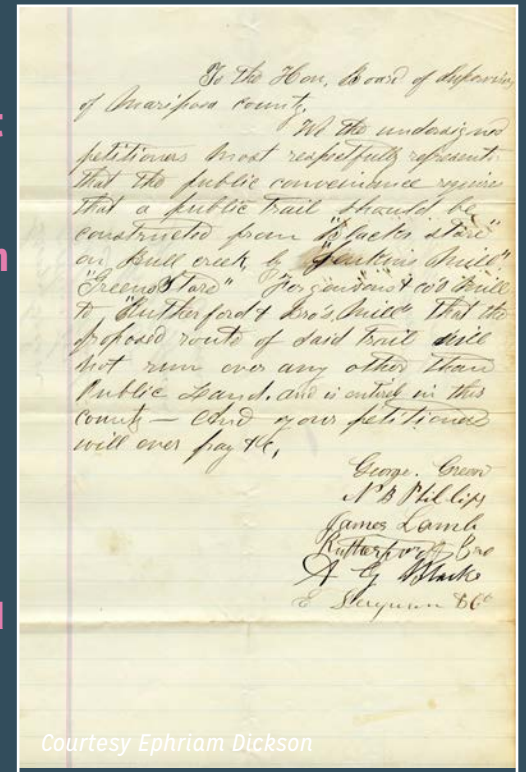 To the Hon, Board of Supervisors
of Mariposa County.
We the undersigned
petitioners most respectfully represent
that the public convenience requires
that a public trail should be
constructed from "Blacks store"
on Bull creek, by "Jenkins Mill"
"Greens Store" & co's Mill
to, "Rutherford & Bro's. Mill", that the
proposed route of said trail will
not run over any other than
Public Land. and is entirely in this
County — And your petitioners
will ever pray &c,
George. Green
N B Phillips
James Lamb
Rutherford & Bro
A G Black
E Ferguson & Co
Courtesy Ephriam Dickson